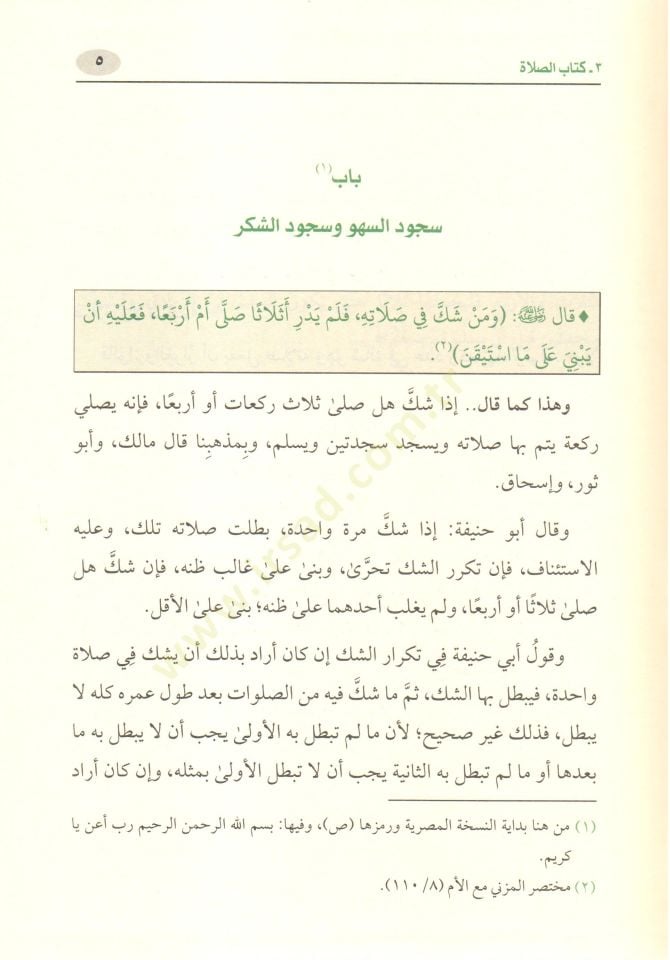 ٣ ـ كتاب الصلاة
٥
باب(١)
سجود السهو وسجود الشكر
♦ قال ﵁: (وَمَنْ شَكَّ فِي صَلَاتِهِ، فَلَمْ يَدْرِ أَثَلَاثًا صَلَّى أَمْ أَرْبَعًا، فَعَلَيْهِ أَنْ
يَبْنِيَ عَلَى مَا اسْتَيْقَنَ)(٢).
وهذا كما قال.. إذا شكَّ هل صلىٰ ثلاث ركعات أو أربعًا، فإنه يصلي
ركعة يتم بها صلاته ويسجد سجدتين ويسلم، وبِمذهبِنا قال مالك، وأبو
ثور، وإسحاق.
وقال أبو حنيفة: إذا شكَّ مرة واحدة، بطلت صلاته تلك، وعليه
الاستئناف، فإن تكرر الشك تحرَّىٰ، وبنىٰ علىٰ غالب ظنه، فإن شكَّ هل
صلىٰ ثلاثًا أو أربعًا، ولم يغلب أحدهما علىٰ ظنه؛ بنىٰ علىٰ الأقل.
وقولُ أبي حنيفة فِي تكرار الشك إن كان أراد بذلك أن يشك فِي صلاة
واحدة، فيبطل بها الشك، ثمَّ ما شكَّ فيه من الصلوات بعد طول عمره كله لا
يبطل، فذلك غير صحيح؛ لأن ما لم تبطل به الأولىٰ يجب أن لا يبطل به ما
بعدها أو ما لم تبطل به الثانية يجب أن لا تبطل الأولىٰ بمثله، وإن كان أراد
(١) من هنا بداية النسخة المصرية ورمزها (ص)، وفيها: بسم الله الرحمن الرحيم رب أعن يا
كريم.
(٢) مختصر المزني مع الأم (٨/ ١١٠).
www.irsad.com.tr